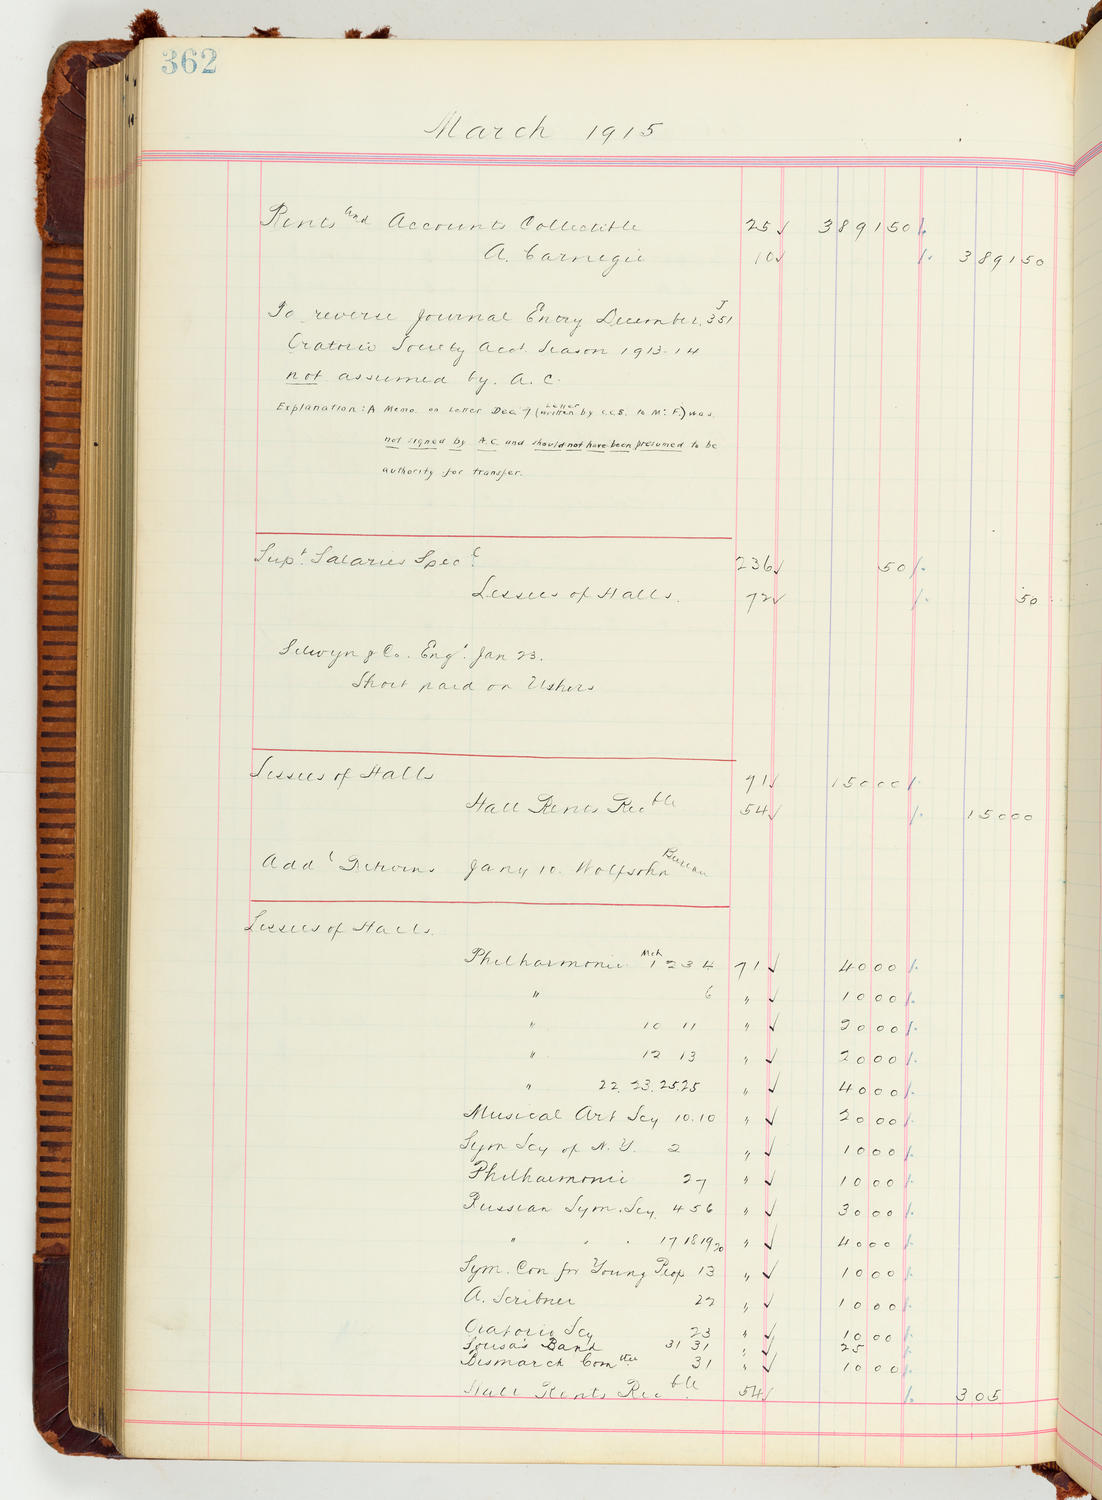 362
March 1915
Rents and Accounts Collectible 25 ✓ 3891 50
A. Carnegie 10 ✓ 3891 50
To reverse Journal Entry December J 351
Oratorio Society Acct. Season 1913-14
not assumed by A. C.
Explanation: A Memo. on Letter Dec 9 (Letter written by C.C.S. to Mr. F.) was
not signed by A.C. and should not have been presumed to be
authority for transfer.
Supt. Salaries Specl 236 ✓ 50
Lessees of Halls. 72 ✓ 50
Selwyn & Co. Engt. Jan 23.
Short paid on Ushers
Lessees of Halls 71 ✓ 150 00
Hall Rents Recble 54 ✓ 150 00
Addl Returns Jany 10. Wolfsohn Bureau
Lessees of Halls.
Philharmonic Mch 1 2 3 4 71 ✓ 40 00
" 6 " ✓ 10 00
" 10 11 " ✓ 20 00
" 12 13 " ✓ 20 00
" 22. 23. 25 25 " ✓ 40 00
Musical Art Scy 10.10 " ✓ 20 00
Sym Scy of N.Y. 2 " ✓ 10 00
Philharmonic 27 " ✓ 10 00
Russian Sym. Scy. 4 5 6 " ✓ 30 00
" " " 17 18 19 20 " ✓ 40 00
Sym. Con for Young Peop 13 " ✓ 10 00
A. Scribner 22 " ✓ 10 00
Oratorio Scy 23 " ✓ 10 00
Sousa's Band 31 31 " ✓ 25
Bismarch Comttee 31 " ✓ 10 00
Hall Rents Recble 54 ✓ 305